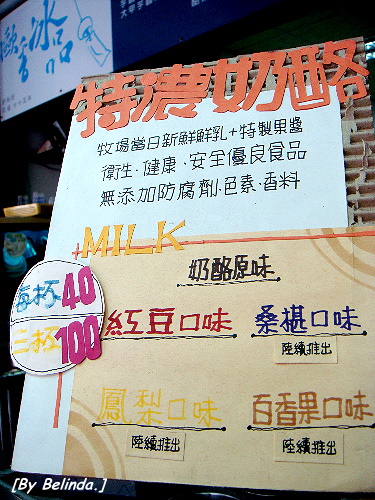 冰品
特濃奶酪
牧場當日新鮮鮮乳+特製果醬
衛生·健康·安全優良食品
無添加防腐劑·色素·香料
+MILK
奶酪原味
每杯40
三杯100
紅豆口味
桑椹口味
陸續推出
鳳梨口味
百香果口味
陸續推出
陸續推出
[By Belinda.]